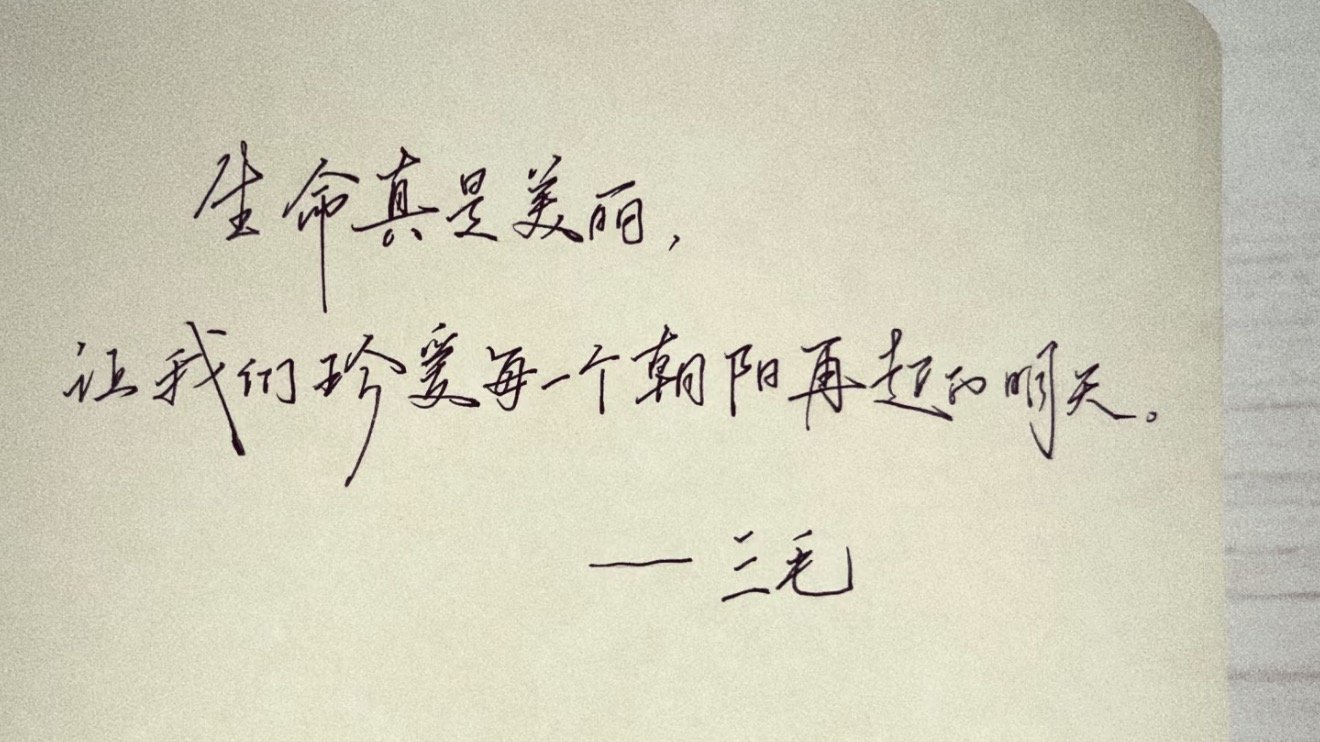 生命真是美丽，
让我们珍爱每一个朝阳再起的明天。
——三毛